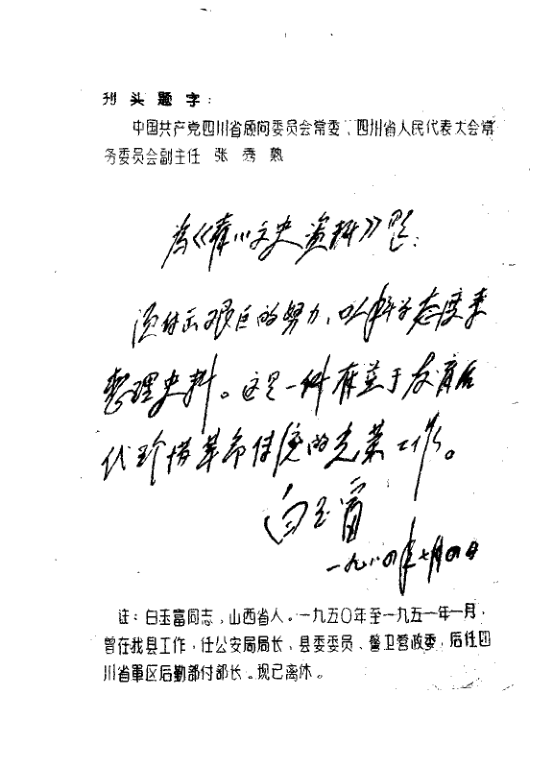 刊头题字：
中国共产党四川省顾问委员会常委、四川省人民代表大会常
务委员会副主任 张秀熟
为《青川文史资料》题：
须付出艰巨的努力，以科学态度来
整理史料。这是一件有益于教育后
代珍惜革命传统的光荣工作。
白玉富
一九八四年七月四日
注：白玉富同志，山西省人。一九五〇年至一九五一年一月，
曾在我县工作，任公安局局长，县委委员、警卫营政委，后任四
川省軍区后勤部付部长。现已离休。